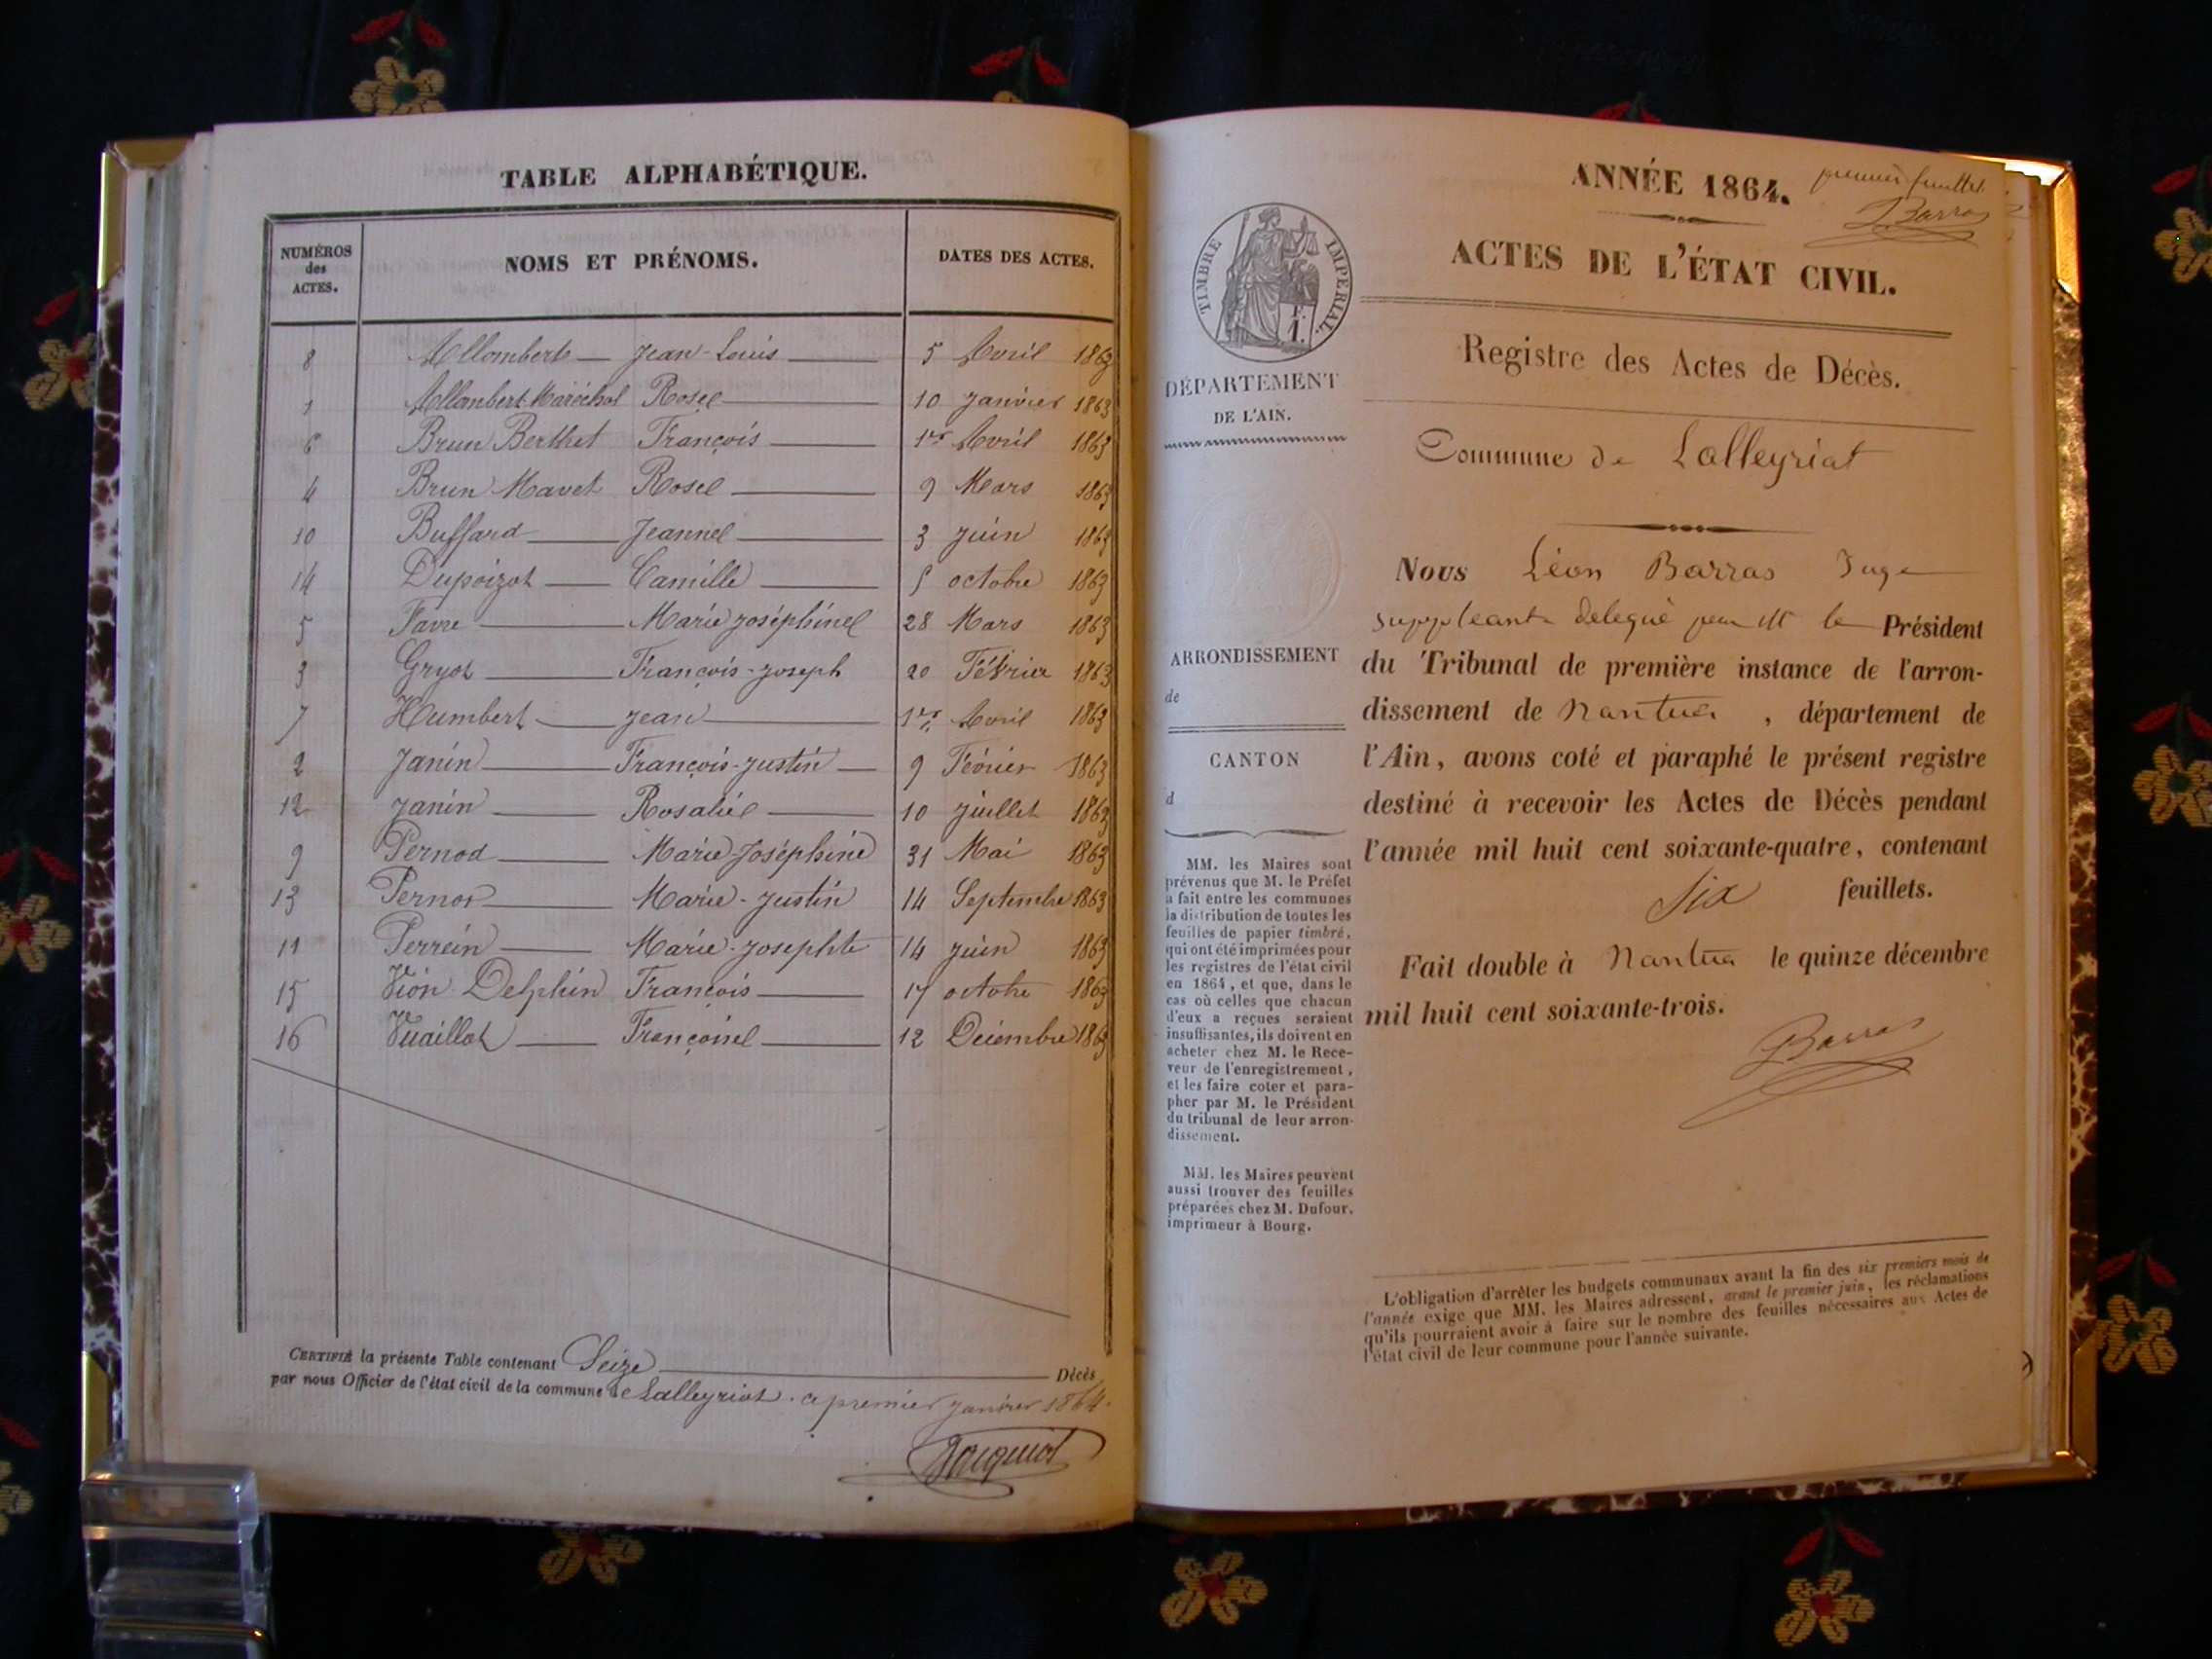 TABLE ALPHABÉTIQUE.
NUMÉROS des ACTES. NOMS ET PRÉNOMS. DATES DES ACTES.
8 Allombert Jean-Louis 5 Avril 1863
1 Allombert Maréchal Rose 10 Janvier 1863
6 Brun Berthet François 1er Avril 1863
4 Brun Mavet Rose 9 Mars 1863
10 Buffard Jeanne 3 Juin 1863
14 Dupoizot Camille 5 octobre 1863
5 Favre Marie Joséphine 28 Mars 1863
3 Gryot François-Joseph 20 Février 1863
7 Humbert Jean 1er Avril 1863
2 Janin François-Justin 9 Février 1863
12 Janin Rosalie 10 Juillet 1863
9 Pernod Marie Joséphine 31 Mai 1863
13 Pernod Marie-Justin 14 Septembre 1863
11 Perrein Marie-Josephte 14 Juin 1863
15 Vion Delphin François 17 octobre 1863
16 Vuaillat Françoise 12 Décembre 1863
CERTIFIÉ la présente Table contenant Seize Décès
par nous Officier de l'état civil de la commune de Lalleyriat. ce premier Janvier 1864.
ANNÉE 1864.
premier feuillet
Barras
ACTES DE L'ÉTAT CIVIL.
TIMBRE IMPERIAL.
Registre des Actes de Décès.
DÉPARTEMENT
DE L'AIN.
Commune de Lalleyriat
ARRONDISSEMENT
de
CANTON
d
MM. les Maires sont
prévenus que M. le Préfet
a fait entre les communes
la distribution de toutes les
feuilles de papier timbré,
qui ont été imprimées pour
les registres de l'état civil
en 1864, et que, dans le
cas où celles que chacun
d'eux a reçues seraient
insuffisantes, ils doivent en
acheter chez M. le Rece-
veur de l'enregistrement,
et les faire coter et para-
pher par M. le Président
du tribunal de leur arron-
dissement.
MM. les Maires peuvent
aussi trouver des feuilles
préparées chez M. Dufour,
imprimeur à Bourg.
Nous Léon Barras Juge
suppléant délégué par M le Président
du Tribunal de première instance de l'arron-
dissement de Nantua, département de
l'Ain, avons coté et paraphé le présent registre
destiné à recevoir les Actes de Décès pendant
l'année mil huit cent soixante-quatre, contenant
Six feuillets.
Fait double à Nantua le quinze décembre
mil huit cent soixante-trois.
Barras
L'obligation d'arrêter les budgets communaux avant la fin des six premiers mois de
l'année exige que MM. les Maires adressent, avant le premier juin, les réclamations
qu'ils pourraient avoir à faire sur le nombre des feuilles nécessaires aux Actes de
l'état civil de leur commune pour l'année suivante.